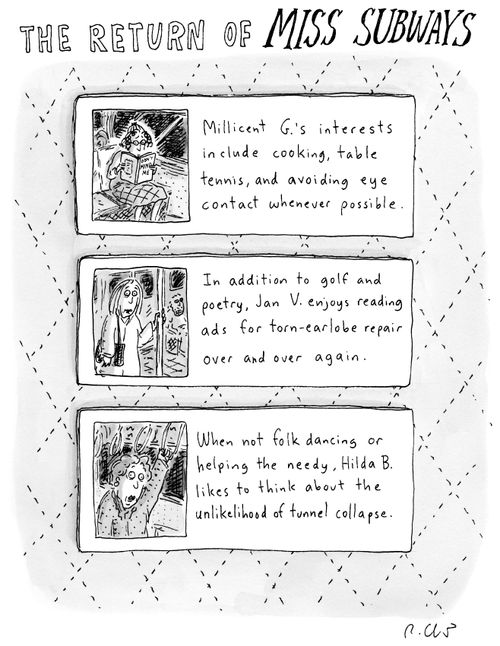 THE RETURN OF MISS SUBWAYS
Millicent G.'s interests
include cooking, table
tennis, and avoiding eye
contact whenever possible.
DON'T
MIND
ME
In addition to golf and
poetry, Jan V. enjoys reading
ads for torn-earlobe repair
over and over again.
When not folk dancing or
helping the needy, Hilda B.
likes to think about the
unlikelihood of tunnel collapse.